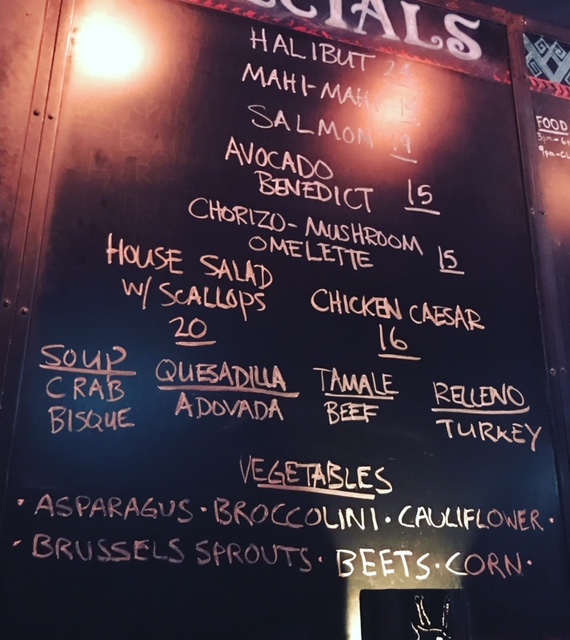 HALIBUT
MAHI-MAHI
SALMON
AVOCADO
BENEDICT 15
CHORIZO-MUSHROOM
OMELETTE 15
HOUSE SALAD
W/ SCALLOPS
20
CHICKEN CAESAR
16
SOUP
CRAB
BISQUE
QUESADILLA
ADOVADA
TAMALE
BEEF
RELLENO
TURKEY
VEGETABLES
• ASPARAGUS • BROCCOLINI • CAULIFLOWER •
• BRUSSELS SPROUTS • BEETS • CORN •
FOOD